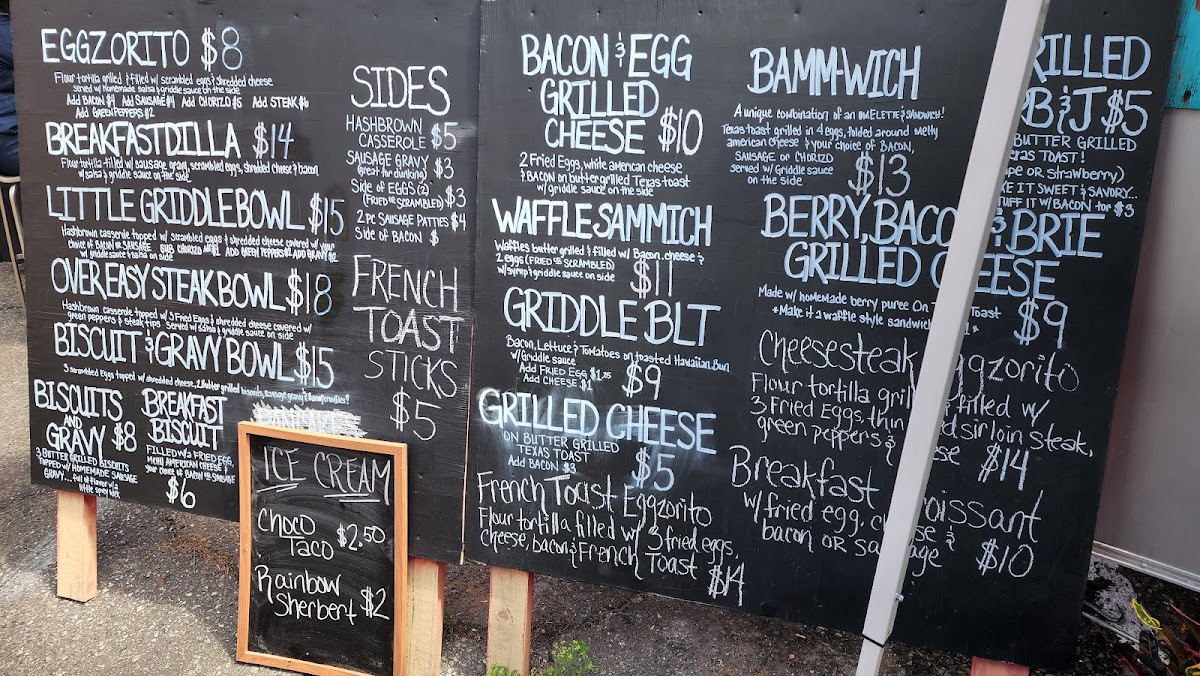 EGGZORITO $8
Flour tortilla grilled & filled w/ scrambled eggs & shredded cheese
served w/ homemade salsa & griddle sauce on the side
Add BACON $4 Add SAUSAGE $4 Add CHORIZO $5 Add STEAK $6
Add GREEN PEPPERS $2
BREAKFASTDILLA $14
Flour tortilla filled w/ sausage gravy, scrambled eggs, shredded cheese & bacon
w/ salsa & griddle sauce on the side
LITTLE GRIDDLE BOWL $15
Hashbrown casserole topped w/ scrambled eggs & shredded cheese covered w/ your
choice of BACON OR SAUSAGE SUB CHORIZO ADD GREEN PEPPERS $2 ADD GRAVY $2
w/ griddle sauce & salsa on side
OVER EASY STEAK BOWL $18
Hashbrown casserole topped w/ 3 Fried Eggs & shredded cheese covered w/
green peppers & steak tips Served w/ salsa & griddle sauce on side
BISCUIT & GRAVY BOWL $15
3 scrambled eggs topped w/ shredded cheese, 2 butter grilled biscuits, sausage gravy &
BISCUITS
AND
GRAVY $8
3 BUTTER GRILLED BISCUITS
TOPPED W/ HOMEMADE SAUSAGE
GRAVY... full of flavor w/ a
little spicy kick
BREAKFAST
BISCUIT
FILLED W/ 2 FRIED EGG,
MELTY AMERICAN CHEESE &
your choice of BACON OR SAUSAGE
$6
SIDES
HASHBROWN
CASSEROLE $5
SAUSAGE GRAVY
(great for dunking) $3
Side of EGGS (2)
(FRIED OR SCRAMBLED) $3
2 PC SAUSAGE PATTIES $4
Side of BACON $
FRENCH
TOAST
STICKS
$5
ICE CREAM
Choco
Taco $2.50
Rainbow
Sherbert $2
BACON & EGG
GRILLED
CHEESE $10
2 Fried Eggs, white american cheese
& BACON on butter grilled Texas toast
w/ griddle sauce on the side
WAFFLE SAMMICH
Waffles butter grilled & filled w/ Bacon, cheese &
2 eggs (FRIED OR SCRAMBLED)
w/ syrup & griddle sauce on side
$11
GRIDDLE BLT
Bacon, Lettuce & Tomatoes on toasted Hawaiian Bun
w/ Griddle sauce
Add FRIED EGG $1.25
Add CHEESE $1
$9
GRILLED CHEESE
ON BUTTER GRILLED
TEXAS TOAST
Add BACON $3
$5
French Toast Eggzorito
Flour tortilla, filled w/ 3 fried eggs,
Cheese, bacon & French Toast $14
BAMM-WICH
A unique combination of an OMELETTE & SANDWICH!
Texas toast grilled in 4 eggs, folded around melty
american cheese & your choice of BACON,
SAUSAGE OR CHORIZO
served w/ Griddle sauce
on the side
$13
BERRY, BACO & BRIE
GRILLED CHEESE
Made w/ homemade berry puree On T Toast
*Make it a waffle style sandwich 1*
$9
Cheesesteak ggzorito
Flour tortilla gril filled w/
3 Fried Eggs, thin ed sirloin steak,
green peppers & se $14
Breakfast roissant
w/ fried egg, c se &
bacon OR sa age $10
RILLED
B & J $5
BUTTER GRILLED
EXAS TOAST!
pe or strawberry)
KE IT SWEET & SAVORY...
TUFF IT W/ BACON for $3